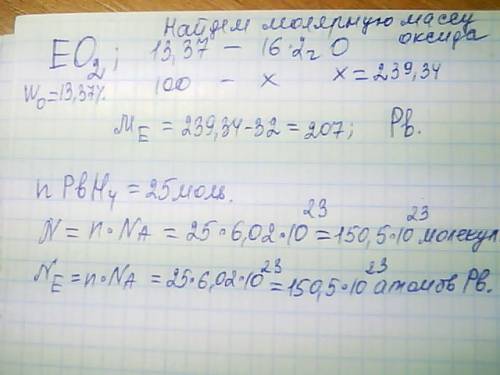 Найдем молярную массу оксида
EO₂; 13,37 – 16·2г O
W₀=13,37%. 100 – x x=239,34
M_E = 239,34-32 = 207; Pb.
n PbH₄ = 25 моль.
N = n·N_A = 25·6,02·10²³ = 150,5·10²³ молекул
N_E = n·N_A = 25·6,02·10²³ = 150,5·10²³ атомов Pb.